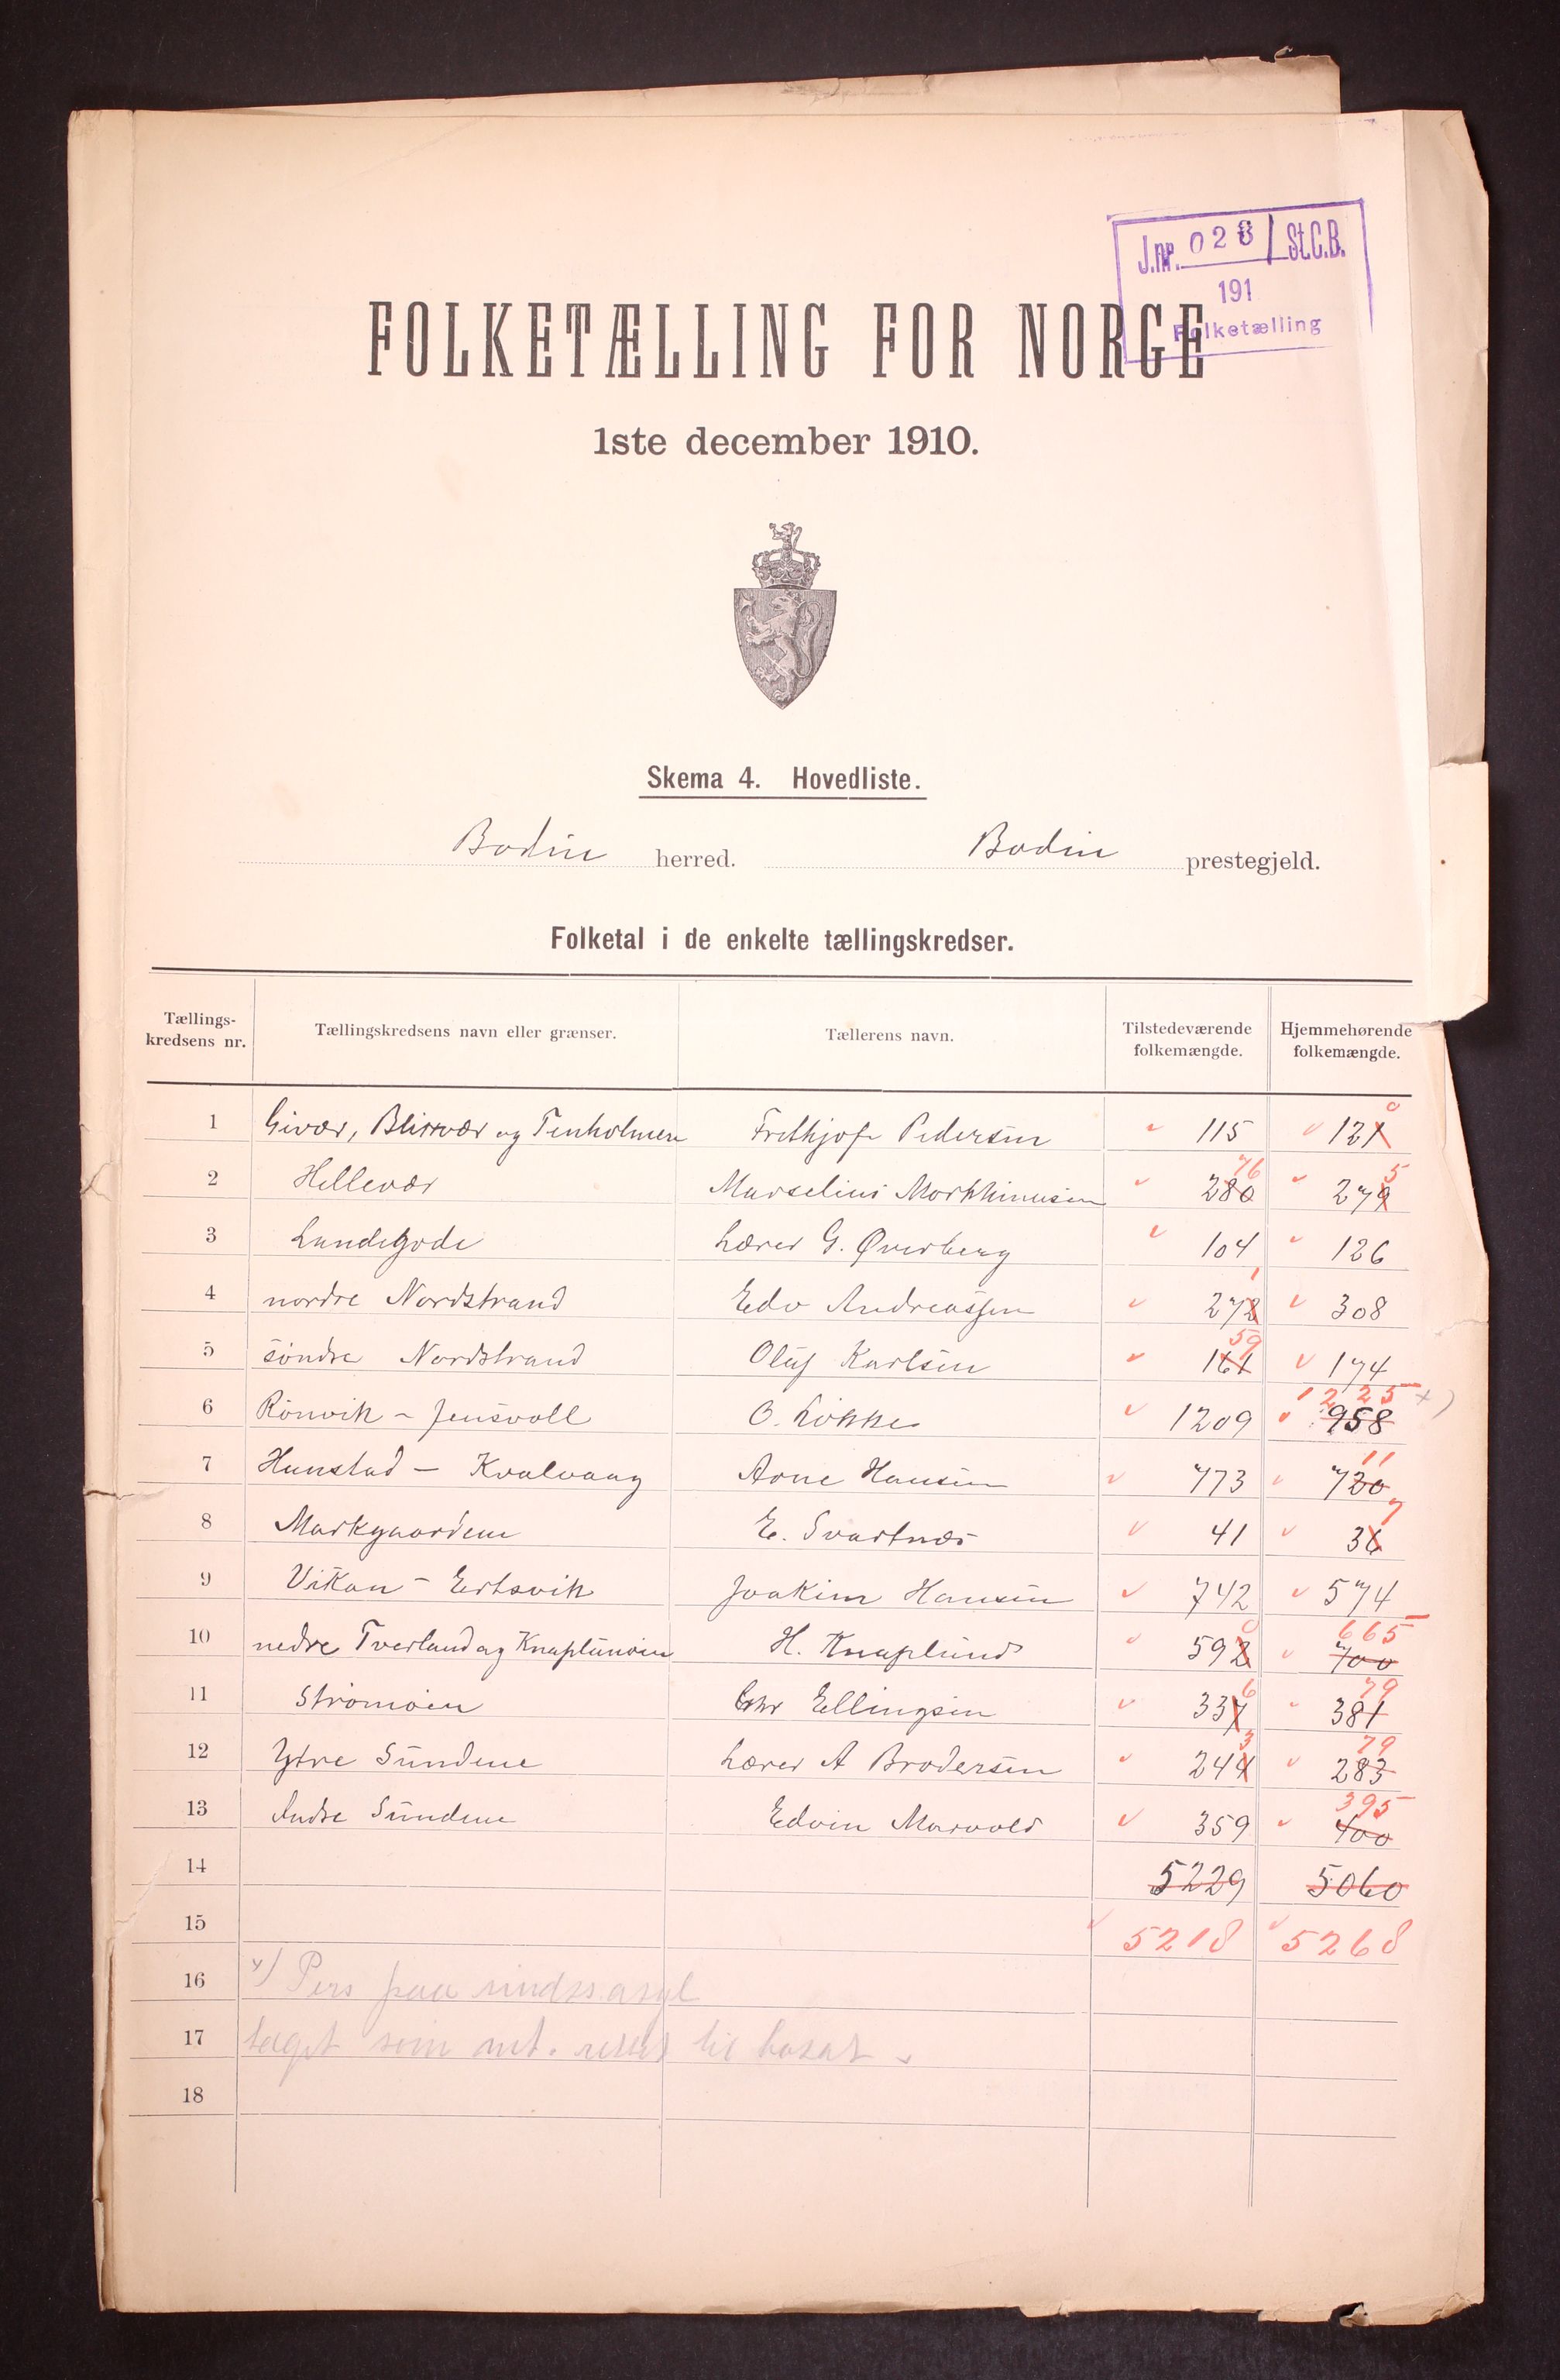 J.nr. 028 / St.C.B.
191
Folketælling
FOLKETÆLLING FOR NORGE
1ste december 1910.
Skema 4. Hovedliste.
Bodin herred. Bodin prestegjeld.
Folketal i de enkelte tællingskredser.
Tællings-kredsens nr. Tællingskredsens navn eller grænser. Tællerens navn. Tilstedeværende folkemængde. Hjemmehørende folkemængde.
1 Givær, Blixvær og Tenholmen Frithjof Pedersen 115 121 0
2 Hellevær Marselius Morthinusen 280 76 279 5
3 Landegode Lærer G. Øverberg 104 126
4 nordre Nordstrand Edv Andreassen 272 1 308
5 söndre Nordstrand Oluf Karlsen 161 59 174
6 Rönvik - Jensvoll O. Lökke 1209 958 1225 x)
7 Hunstad - Kvalvaag Arne Hansen 773 720 11
8 Markgaardene E. Svartnæs 41 36 7
9 Vikan - Ertsvik Joakim Hansen 742 574
10 nedre Tverland og Knaplundöien H. Knaplund 592 0 700 665
11 Strömöien Chr Ellingsen 337 6 381 79
12 Ytre Sundene Lærer A Brodersen 244 3 283 79
13 Indre Sundene Edvin Marvold 359 400 395
14 5229 5060
15 5218 5268
16 x) Pers paa sindss.asyl
17 taget som mt. til bosat
18